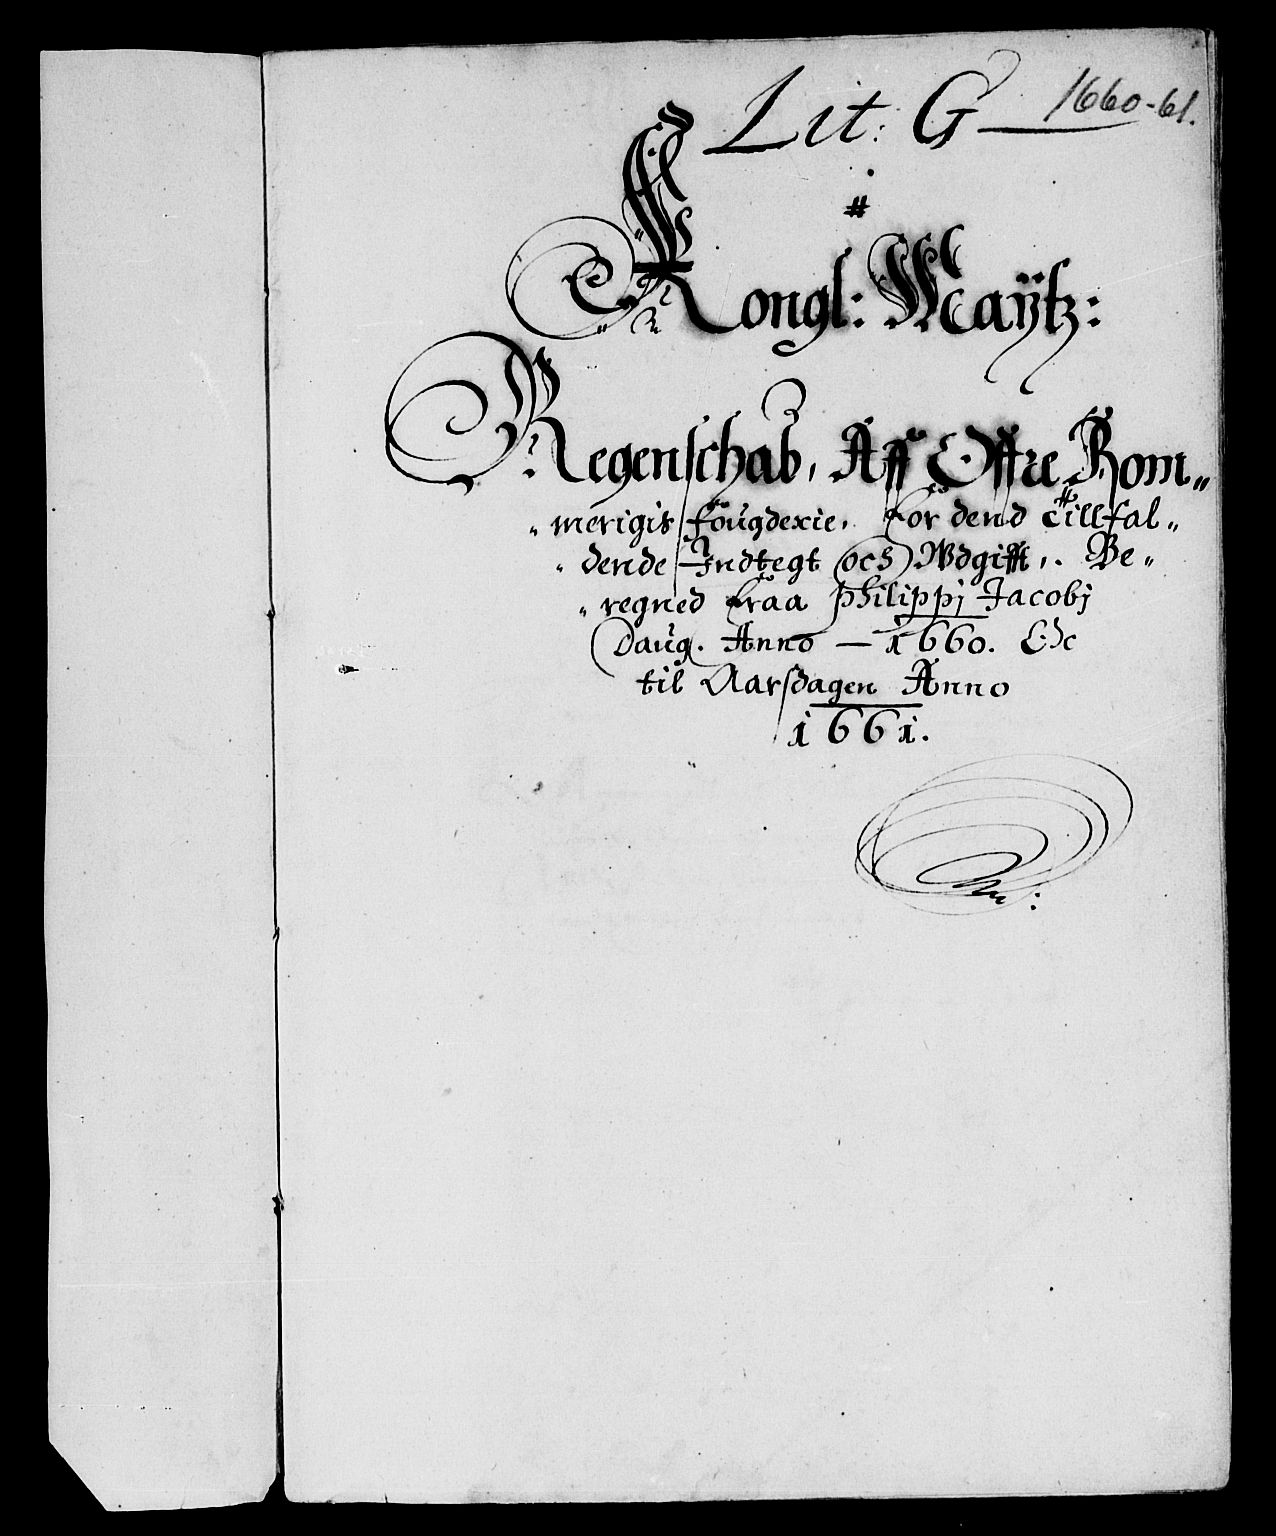 Lit: G 1660-61.
Kongl: Maÿtz:
Regenschab, Aff Öffre Rom„
„merigis fougderie, for dend tillfal„
„dende Indtegt och Wdgifft,. Be„
„regned fraa Philippj Jacobj
Daug. Anno — 1660. Etc
til Aarsdagen Anno
1661.